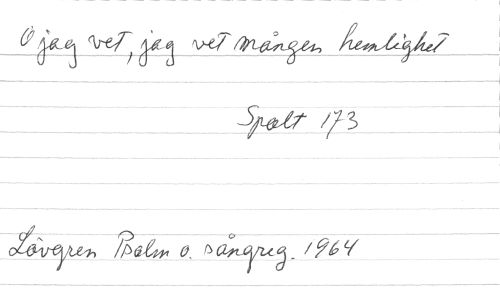 O jag vet, jag vet mången hemlighet
Spalt 173
Lövgren Psalm o. sångreg. 1964